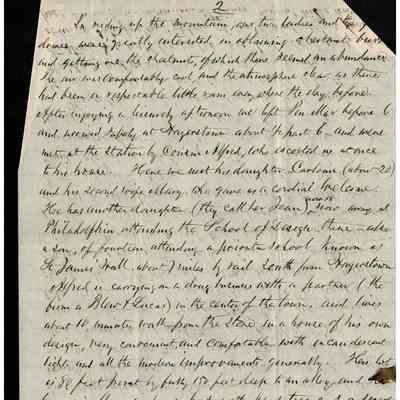 2
In riding up the mountain, our two ladies and
domes, were greatly interested, in obtaining chestnut burs,
and getting out the chestnuts, of which there seemed an abundance
The air was comfortably cool, and the atmosphere clear, as there
had been a respectable little rain away where the day before.
After enjoying a leisurely afternoon we left Pen Mar before 6
and arrived safely at Hagerstown about 1/4 past 6 and were
met at the station by Cousin Alfred, who escorted us at once
to his house. Here we met his daughter Caroline (about 20)
and his second wife Mary, who gave us a cordial welcome.
He has another daughter (they call her Jean) now away at
Philadelphia attending the School of Design there - also
a son, of fourteen attending a private school known as
St James Hall about 7 miles by rail south from Hagerstown
Alfred is carrying on a drug business with a partner (the
firm a Blew & Lucas) in the centre of the town, and lives
about 10 minutes walk from the Store in a house of his own
design, very convenient, and comfortable with incandescent
lights and all the modern improvements generally. His lot
is 80 feet front by fully 150 feet deep to an alley, and